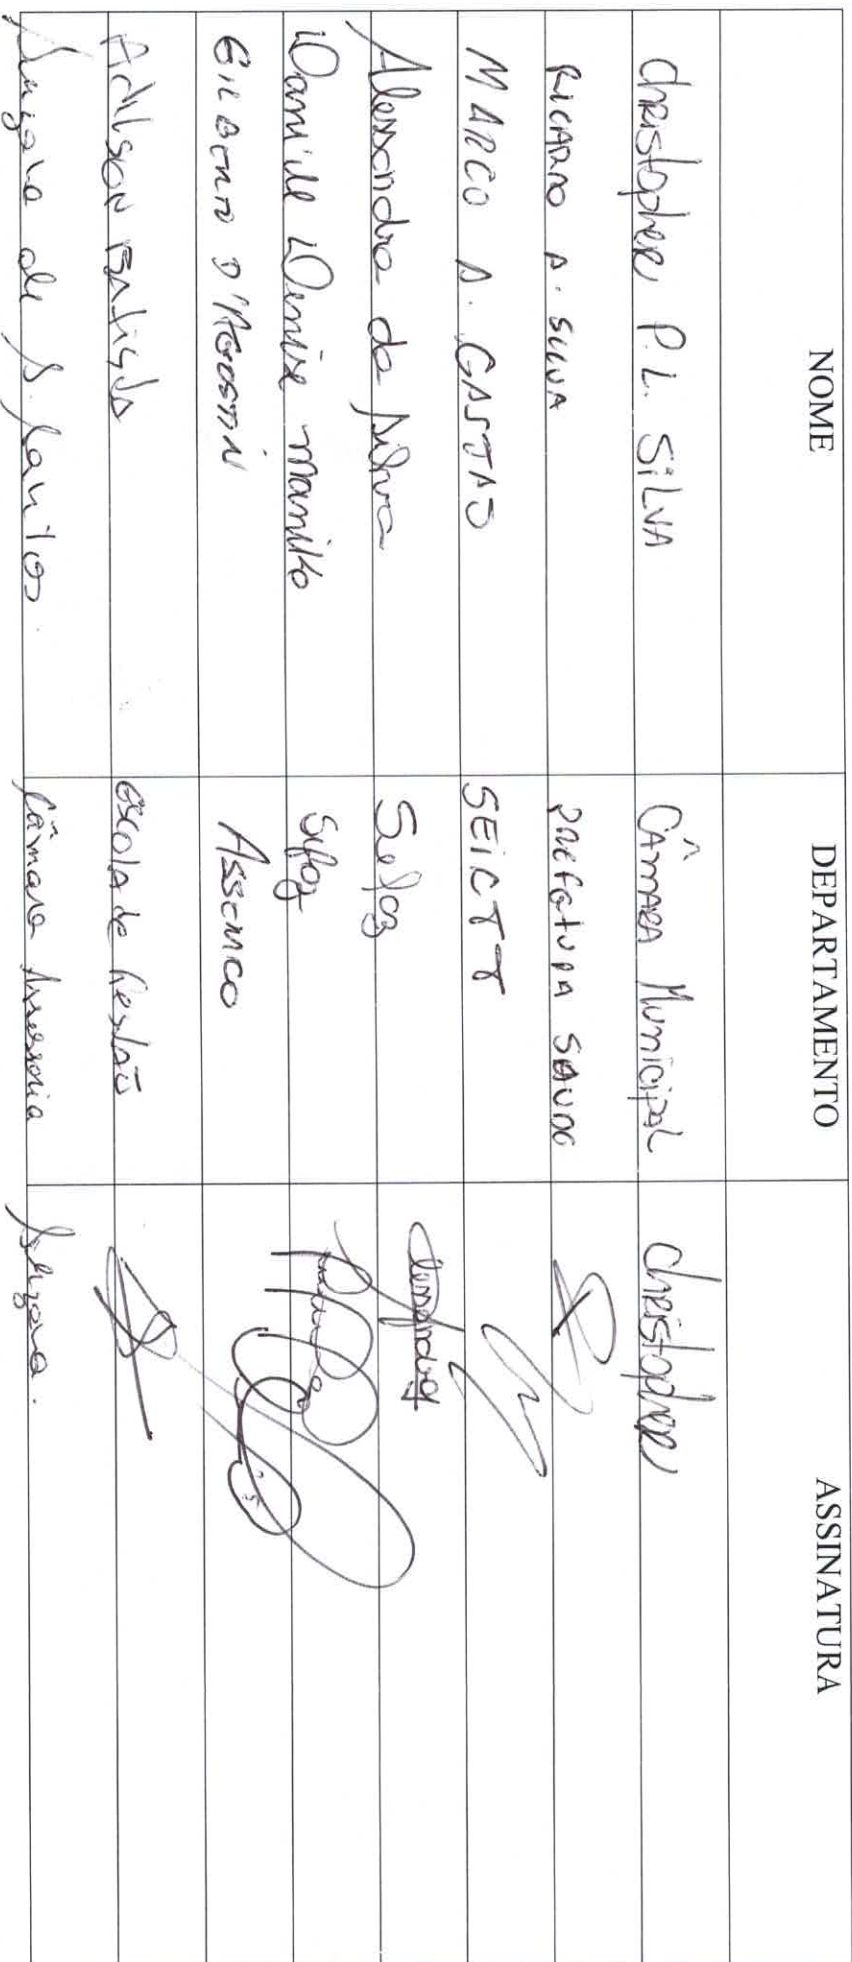 NOME DEPARTAMENTO ASSINATURA
Christopher P. L. SiLVA CÂMARA Municipal Christopher
RICARDO A. SILVA PREFEITURA SAUDE
MARCO A. GASTAO SEICTT
Alessandra da Silva Sefaz Alessandra
Danielle Denise Sefaz
GILBERTO D'AGOSTIN Assemco
Adilson Batista Escola de Gestão
de S. Santos. Câmara Assessoria